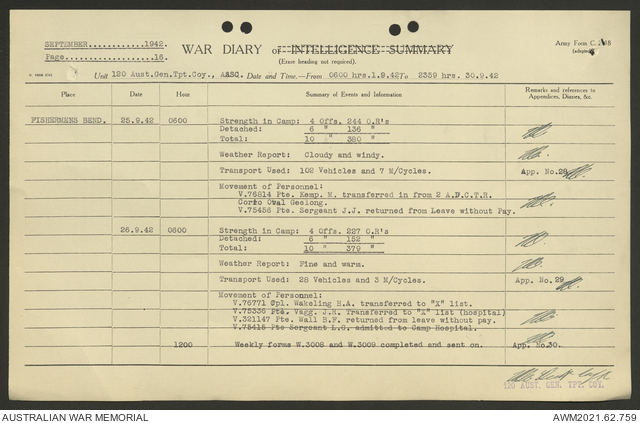 SEPTEMBER...........1942.
Page....................16.
WAR DIARY OF INTELLIGENCE SUMMARY
(Erase heading not required).
Army Form C.
Unit 120 Aust.Gen.Tpt.Coy., AASC. Date and Time.—From 0600 hrs.1.9.42 To 2359 hrs. 30.9.42
Place Date Hour Summary of Events and Information Remarks and references to Appendices, Diaries, &c.
FISHERMENS BEND. 25.9.42 0600 Strength in Camp: 4 Offs. 244 O.R's
Detached: 6 " 136 "
Total: 10 " 380 "
Weather Report: Cloudy and windy.
Transport Used: 102 Vehicles and 7 M/Cycles. App. No.28
Movement of Personnel:
V.76814 Pte. Kemp. M. transferred in from 2 A.D.C.T.R.
Corio Oval Geelong.
V.75456 Pte. Sergeant J.J. returned from Leave without Pay.
26.9.42 0600 Strength in Camp: 4 Offs. 227 O.R's
Detached: 6 " 152 "
Total: 10 " 379 "
Weather Report: Fine and warm.
Transport Used: 28 Vehicles and 3 M/Cycles. App. No.29
Movement of Personnel:
V.76771 Cpl. Wakeling H.A. transferred to "X" list.
V.75336 Pte. Vagg. J.R. Transferred to "X" list (hospital)
V.321147 Pte. Wall B.F. returned from leave without pay.
V.75415 Pte Sergeant L.G. admitted to Camp Hospital.
1200 Weekly forms W.3008 and W.3009 completed and sent on. App. No.30.
120 AUST. GEN. TPT. COY.
AUSTRALIAN WAR MEMORIAL AWM2021.62.759